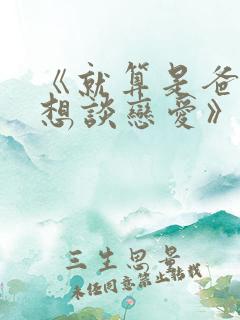 《就算是爸
想談戀愛》
三生思景
未經同意禁止轉載